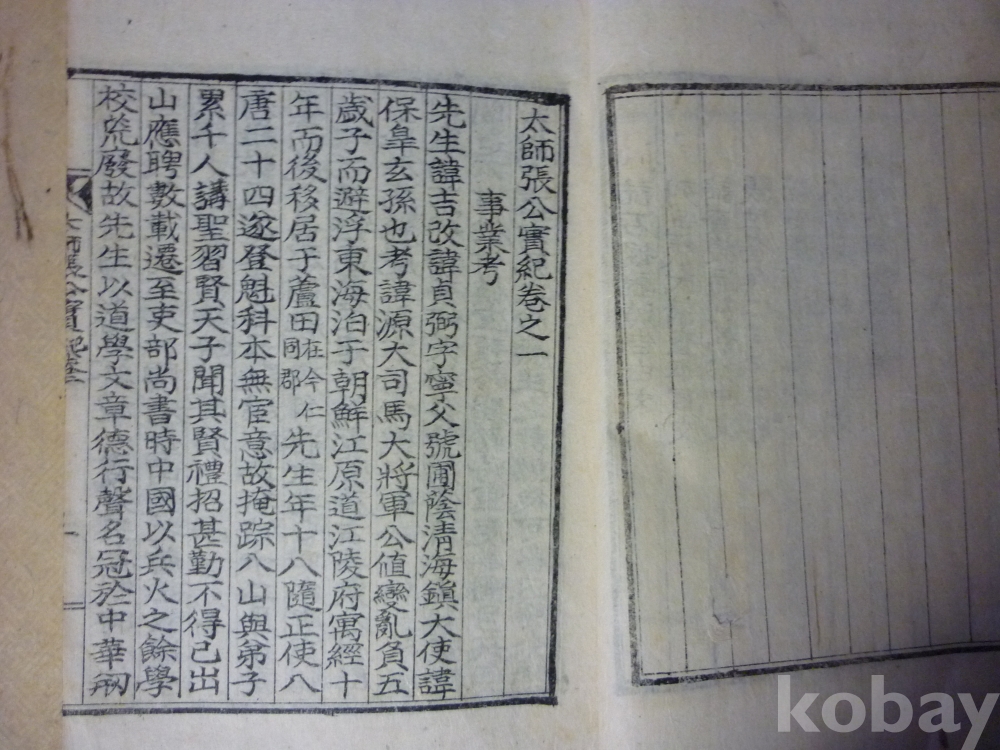 太師張公實紀卷之一
事業考
先生諱吉改諱貞弼字寧父號圃陰清海鎭大使諱
保皐玄孫也考諱源大司馬大將軍公値變亂負五
歲子而避浮東海泊于朝鮮江原道江陵府寓經十
年而後移居于蘆田在今仁同郡先生年十八隨正使入
唐二十四遂登魁科本無宦意故掩踪入山與弟子
累千人講聖習賢天子聞其賢禮招甚勤不得已出
山應聘數載遷至吏部尚書時中國以兵火之餘學
校荒廢故先生以道學文章德行聲名冠於中華剏
太師張公實紀卷一
kobay